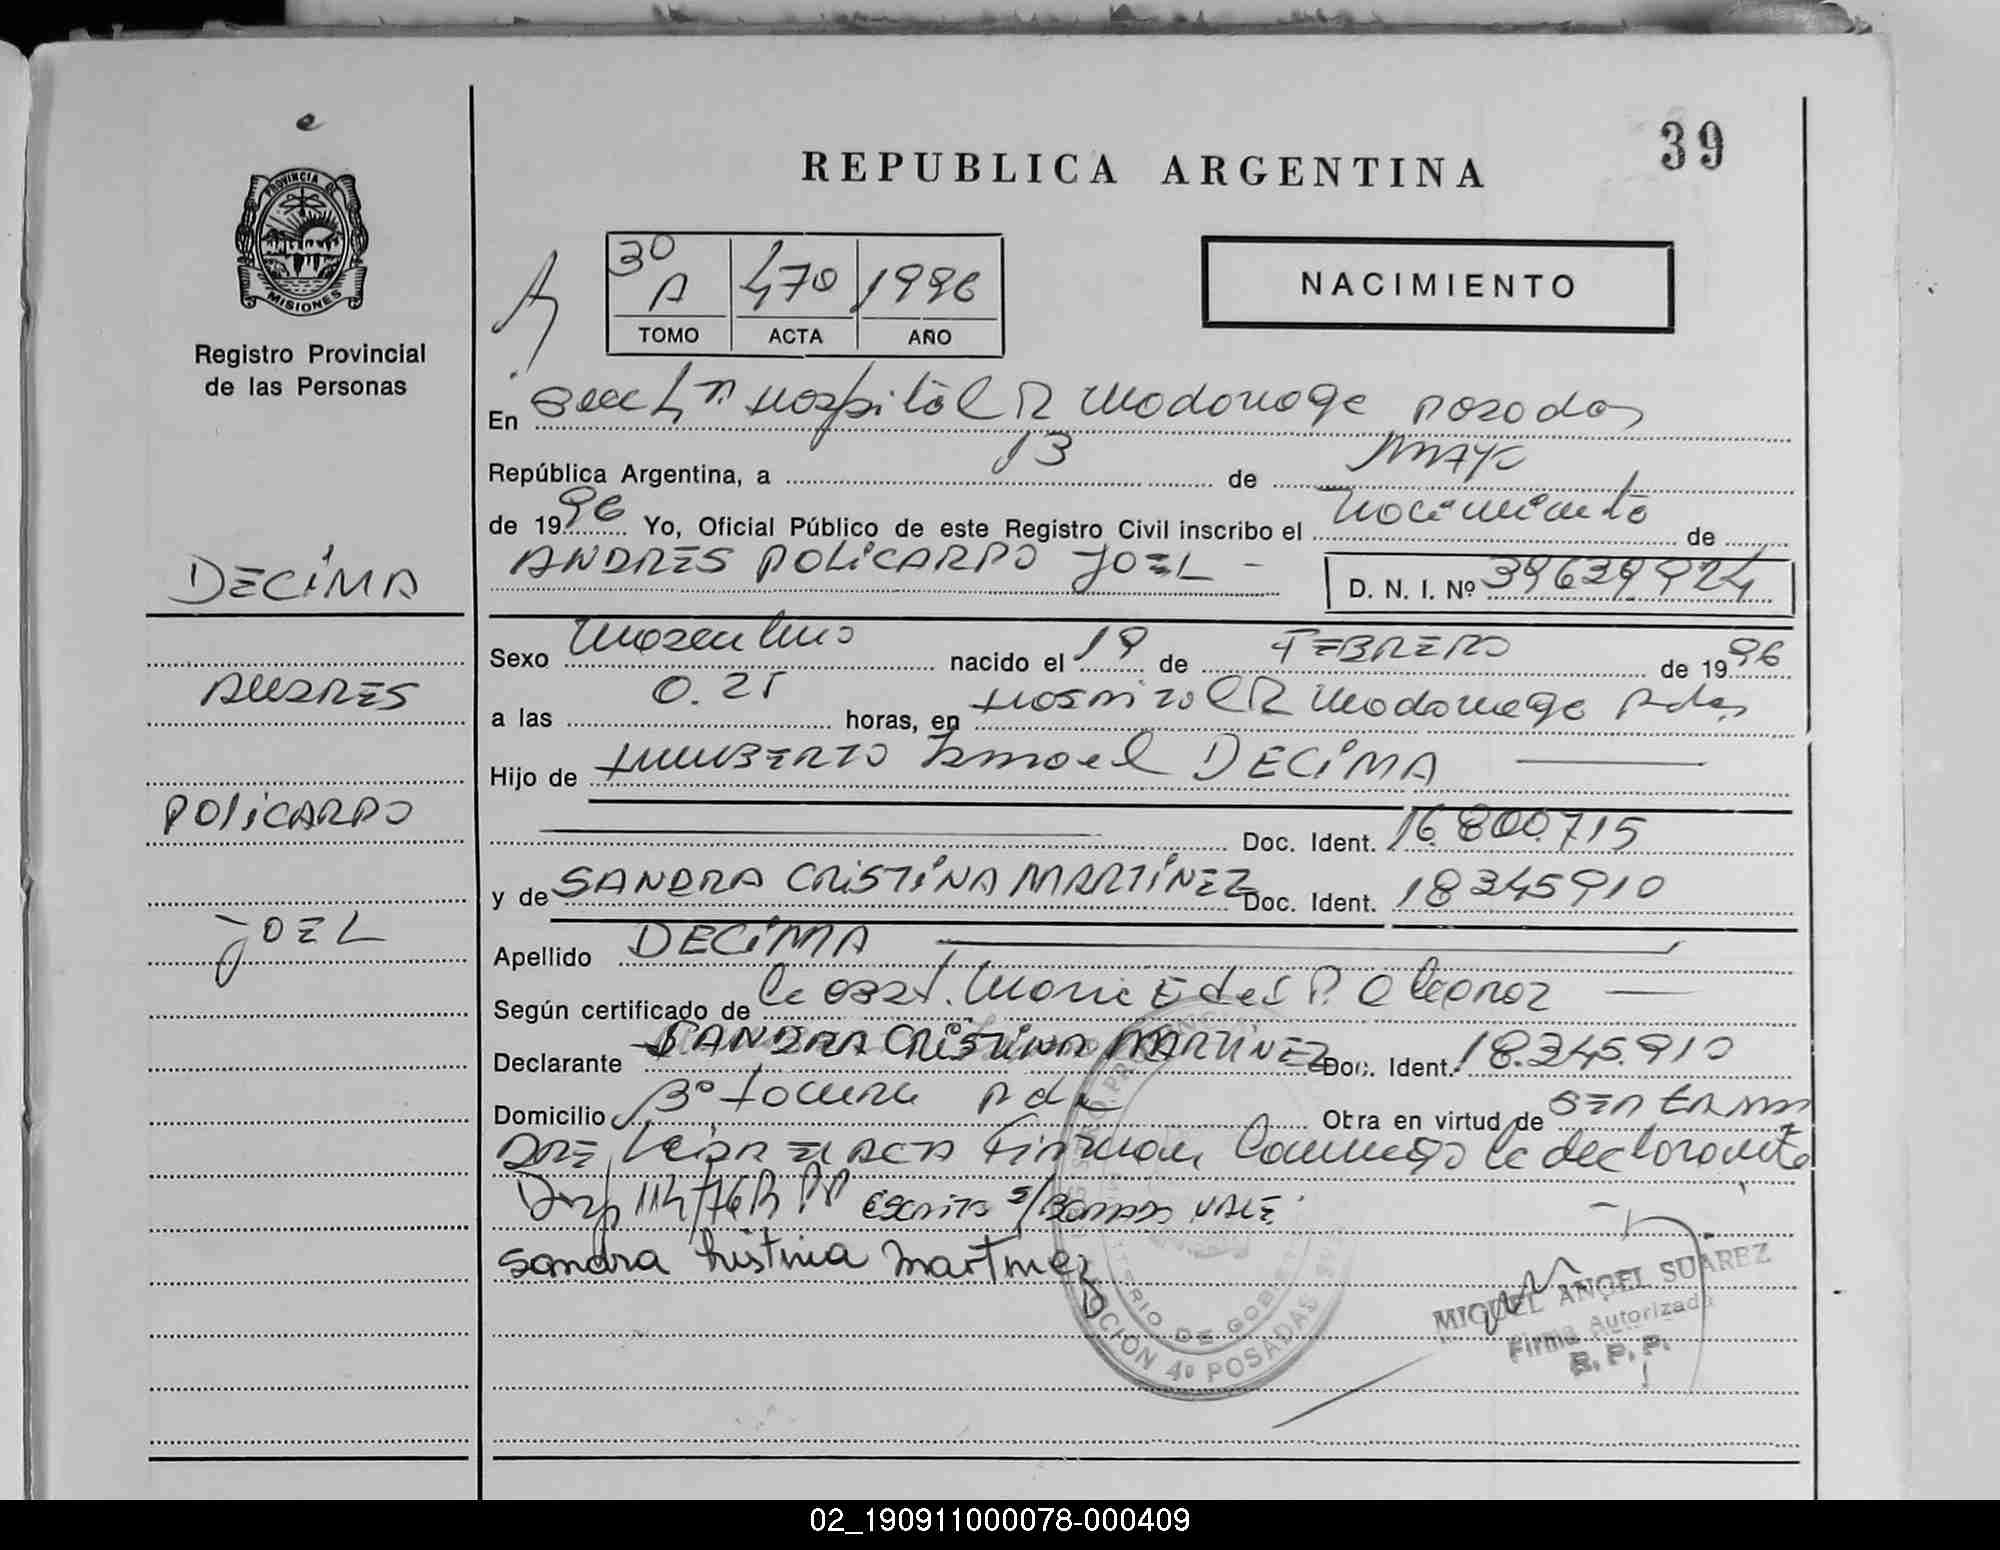 39
REPUBLICA ARGENTINA
PROVINCIA DE
MISIONES
Registro Provincial
de las Personas
3º A 470 1996
TOMO ACTA AÑO
NACIMIENTO
En Secc 4ª Hospital R Madariaga Posadas
República Argentina, a 13 de MAYO
de 1996 Yo, Oficial Público de este Registro Civil inscribo el nacimiento de
ANDRES POLICARPO JOEL -
D. N. I. Nº 39639924
DECIMA
ANDRES
POLICARPO
JOEL
Sexo masculino nacido el 19 de FEBRERO de 1996
a las 0.25 horas, en Hospital R Madariaga Pdas
Hijo de HUMBERTO Ismael DECIMA
Doc. Ident. 16.800.715
y de SANDRA CRISTINA MARTINEZ Doc. Ident. 18345910
Apellido DECIMA
Según certificado de la obst. Maria E del P.
Declarante SANDRA CRISTINA MARTINEZ Doc. Ident. 18.345.910
Domicilio Obra en virtud de SER LA MA
DRE Leida EL ACTA Firman Conmigo la declarante
Escrito s/ VALE
Sandra Cristina Martinez
MINISTERIO DE GOBIERNO
SECCION 4º POSADAS
MIGUEL ANGEL SUAREZ
Firma Autorizada
R. P. P.
02_190911000078-000409